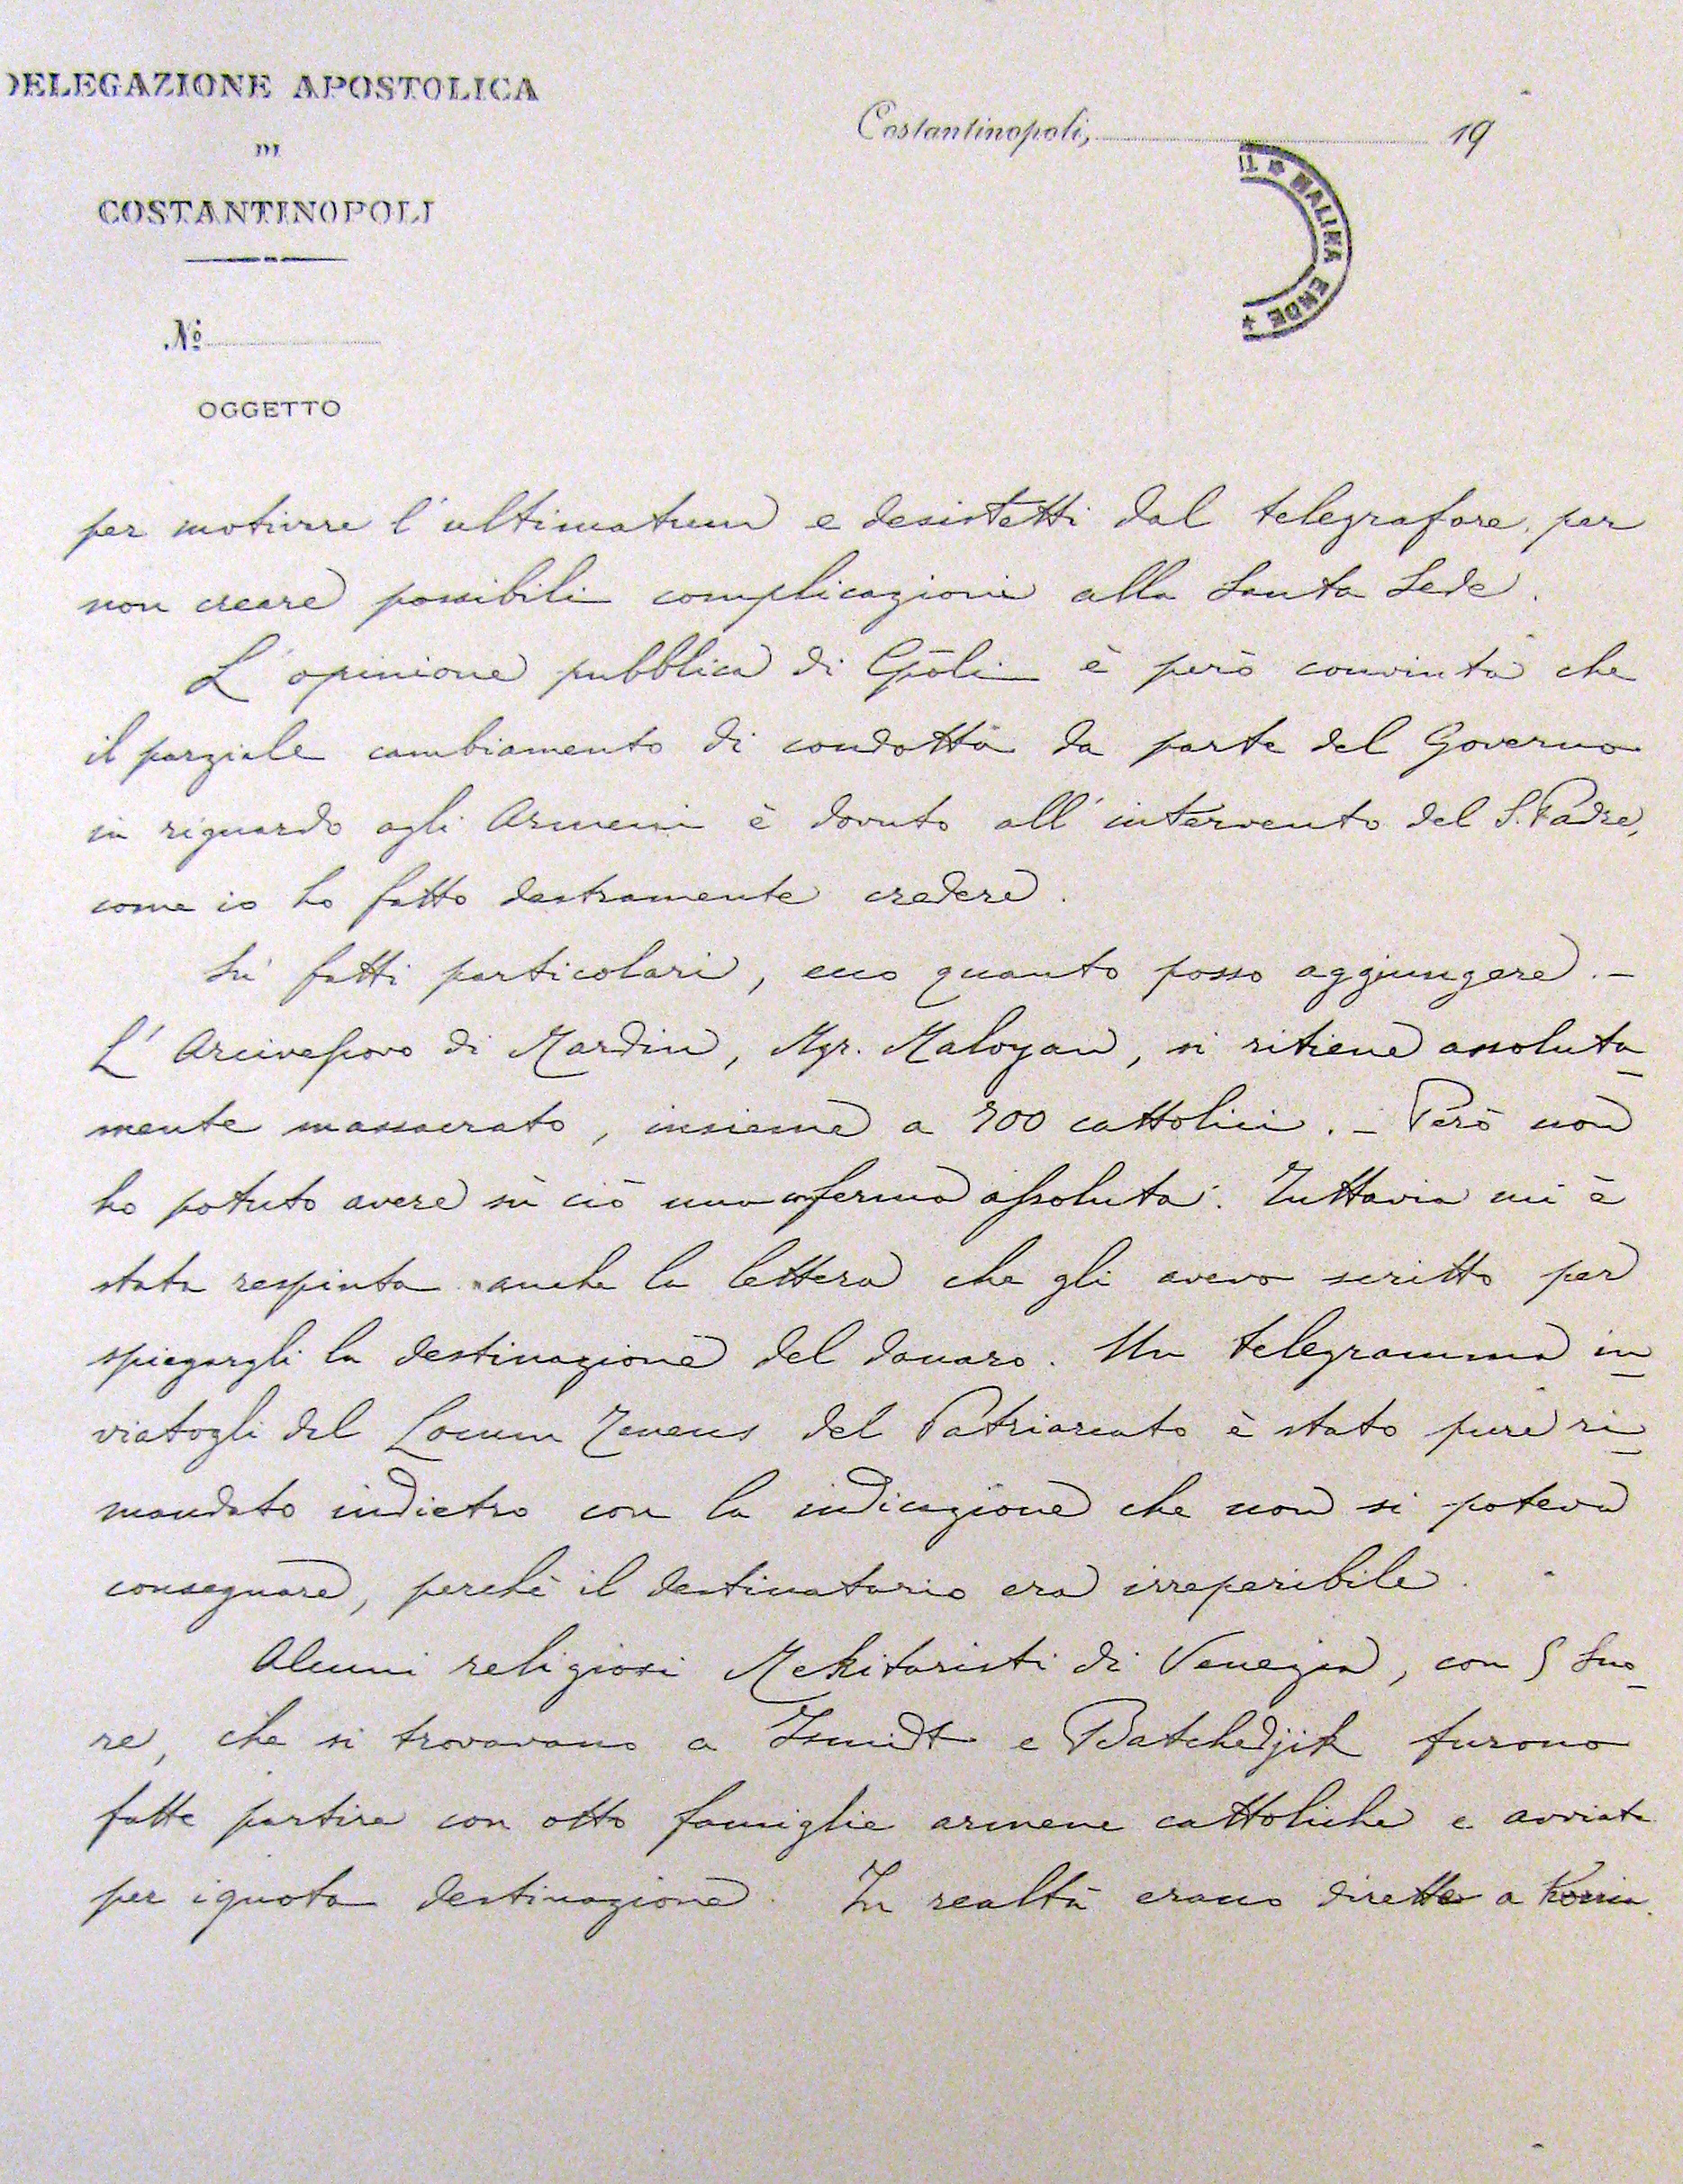 DELEGAZIONE APOSTOLICA
DI
COSTANTINOPOLI
Costantinopoli, 19
MALINA ENDE
Nº
OGGETTO
per motivare l'ultimatum e desistetti dal telegrafare, per
non creare possibili complicazioni alla Santa Sede.
L'opinione pubblica di Cpoli è però convinta che
il parziale cambiamento di condotta da parte del Governo
in riguardo agli Armeni è dovuto all'intervento del S. Padre,
come io ho fatto destramente credere.
Su' fatti particolari, ecco quanto posso aggiungere. –
L'Arcivescovo di Mardin, Mgr. Maloyan, si ritiene assoluta-
mente massacrato, insieme a 700 cattolici. – Però non
ho potuto avere su ciò una conferma assoluta. Tuttavia mi è
stata respinta anche la lettera che gli avevo scritto per
spiegargli la destinazione del danaro. Un telegramma in-
viatogli dal Locum Tenens del Patriarcato è stato pure ri-
mandato indietro con la indicazione che non si poteva
consegnare, perchè il destinatario era irreperibile.
Alcuni religiosi Mekitaristi di Venezia, con 5 Suo-
re, che si trovavano a Ismidt e Batchedjik furono
fatte partire con otto famiglie armene cattoliche e avviate
per ignota destinazione. In realtà erano dirette a